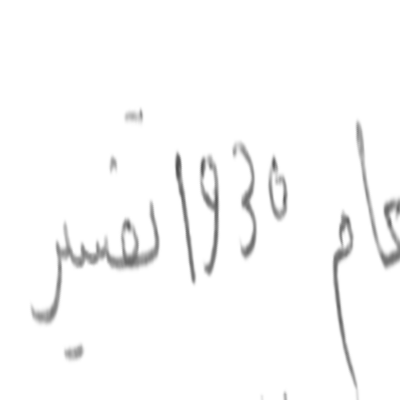 عام 1930 تفسير